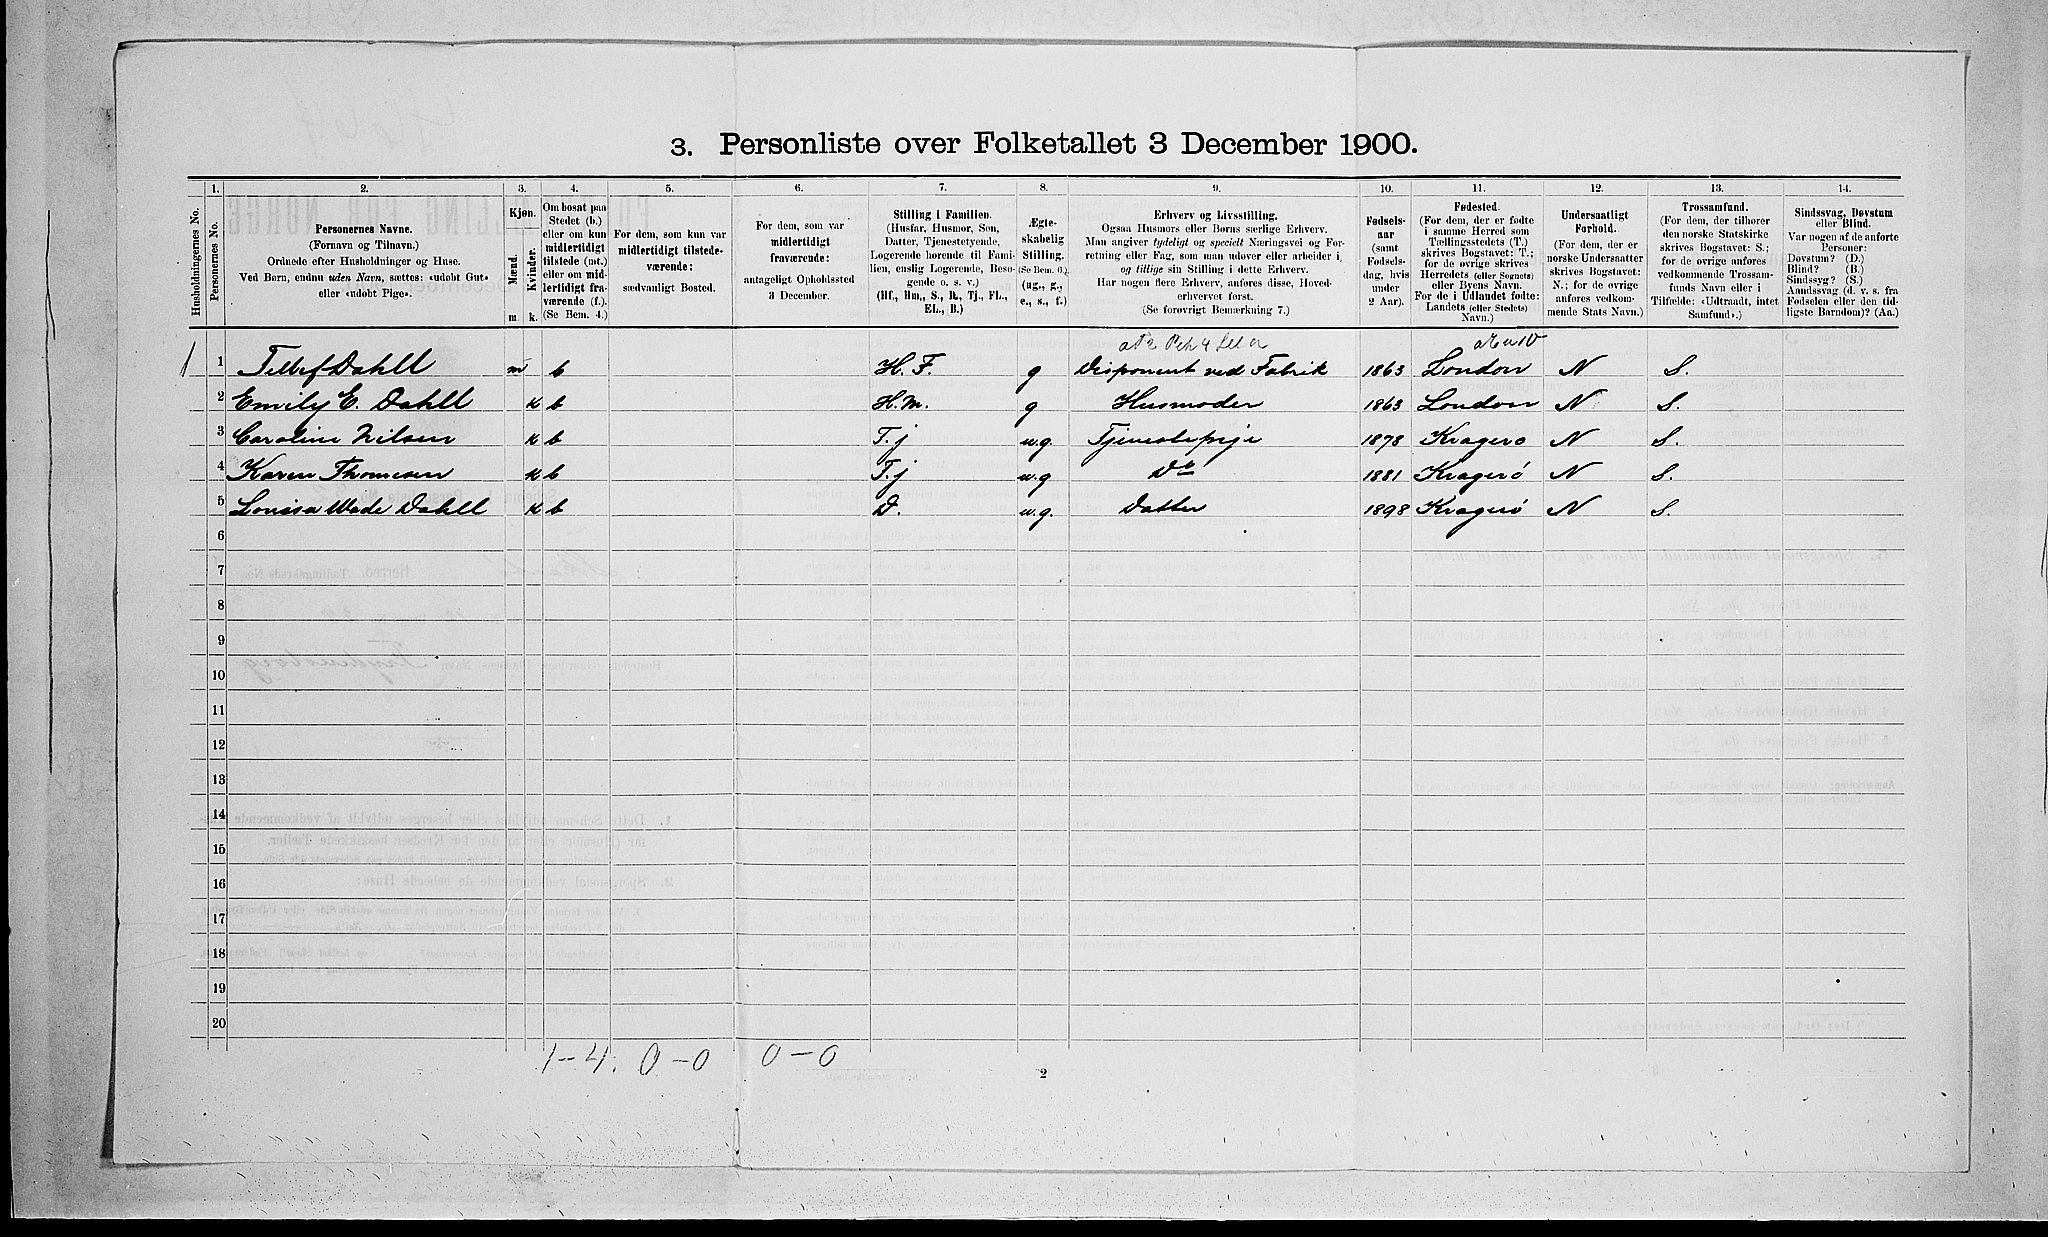 3. Personliste over Folketallet 3 December 1900.
1. 2. 3. 4. 5. 6. 7. 8. 9. 10. 11. 12. 13. 14.
Husholdningernes No.
Personernes No.
Personernes Navne.
(Fornavn og Tilnavn.)
Ordnede efter Husholdninger og Huse.
Ved Børn, endnu uden Navn, sættes: «udøbt Gut»
eller «udøbt Pige».
Kjøn.
Mænd.
Kvinder.
m. k.
Om bosat paa
Stedet (b.)
eller om kun
midlertidigt
tilstede (mt.)
eller om mid-
lertidigt fra-
værende (f.).
(Se Bem. 4.)
For dem, som kun var
midlertidigt tilstede-
værende:
sædvanligt Bosted.
For dem, som var
midlertidigt
fraværende:
antageligt Opholdssted
3 December.
Stilling i Familien.
(Husfar, Husmor, Søn,
Datter, Tjenestetyende,
Logerende hørende til Fami-
lien, enslig Logerende, Besø-
gende o. s. v.)
(Hf., Hm., S., D., Tj., FL.,
EL., B.)
Ægte-
skabelig
Stilling.
(Se Bem. 6.)
(ug., g.,
e., s., f.)
Erhverv og Livsstilling.
Ogsaa Husmors eller Børns særlige Erhverv.
Man angiver tydeligt og specielt Næringsvei og For-
retning eller Fag, som man udøver eller arbeider i,
og tillige sin Stilling i dette Erhverv.
Har nogen flere Erhverv, anføres disse, Hoved-
erhvervet først.
(Se forøvrigt Bemærkning 7.)
Fødsels-
aar
(samt
Fødsels-
dag, hvis
under
2 Aar).
Fødested.
(For dem, der er fødte
i samme Herred som
Tællingsstedets (T.)
skrives Bogstavet: T.;
for de øvrige skrives
Herredets (eller Sognets)
eller Byens Navn.
For de i Udlandet fødte:
Landets (eller Stedets)
Navn.)
Undersaatligt
Forhold.
(For dem, der er
norske Undersaatter
skrives Bogstavet:
N.; for de øvrige
anføres vedkom-
mende Stats Navn.)
Trossamfund.
(For dem, der tilhører
den norske Statskirke
skrives Bogstavet: S.;
for de øvrige anføres
vedkommende Trossam-
funds Navn eller i
Tilfælde: «Udtraadt, intet
Samfund».)
Sindssvag, Døvstum
eller Blind.
Var nogen af de anførte
Personer:
Døvstum? (D.)
Blind? (B.)
Sindssyg? (S.)
Aandssvag (d. v. s. fra
Fødselen eller den tid-
ligste Barndom)? (Aa.)
1 1 Tellef Dahll m b H.F. g Disponent ved Fabrik 1863 London N S.
2 Emily E. Dahll k b H.M. g Husmoder 1863 London N S.
3 Caroline Nilsen k b T.j u.g. Tjenestepige 1878 Kragerø N S.
4 Karen Thomesen k b T.j u.g Do 1881 Kragerø N S.
5 Lovisa Wade Dahll k b D. u.g. Datter 1898 Kragerø N S.
6
7
8
9
10
11
12
13
14
15
16
17
18
19
20
1-4. 0-0 0-0
2